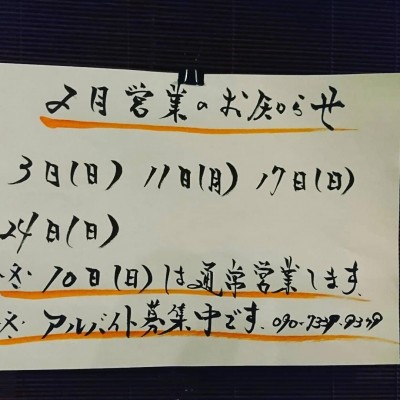 2月営業のお知らせ
3日(日) 11日(月) 17日(日)
24日(日)
10日(日)は通常営業します.
アルバイト募集中です.